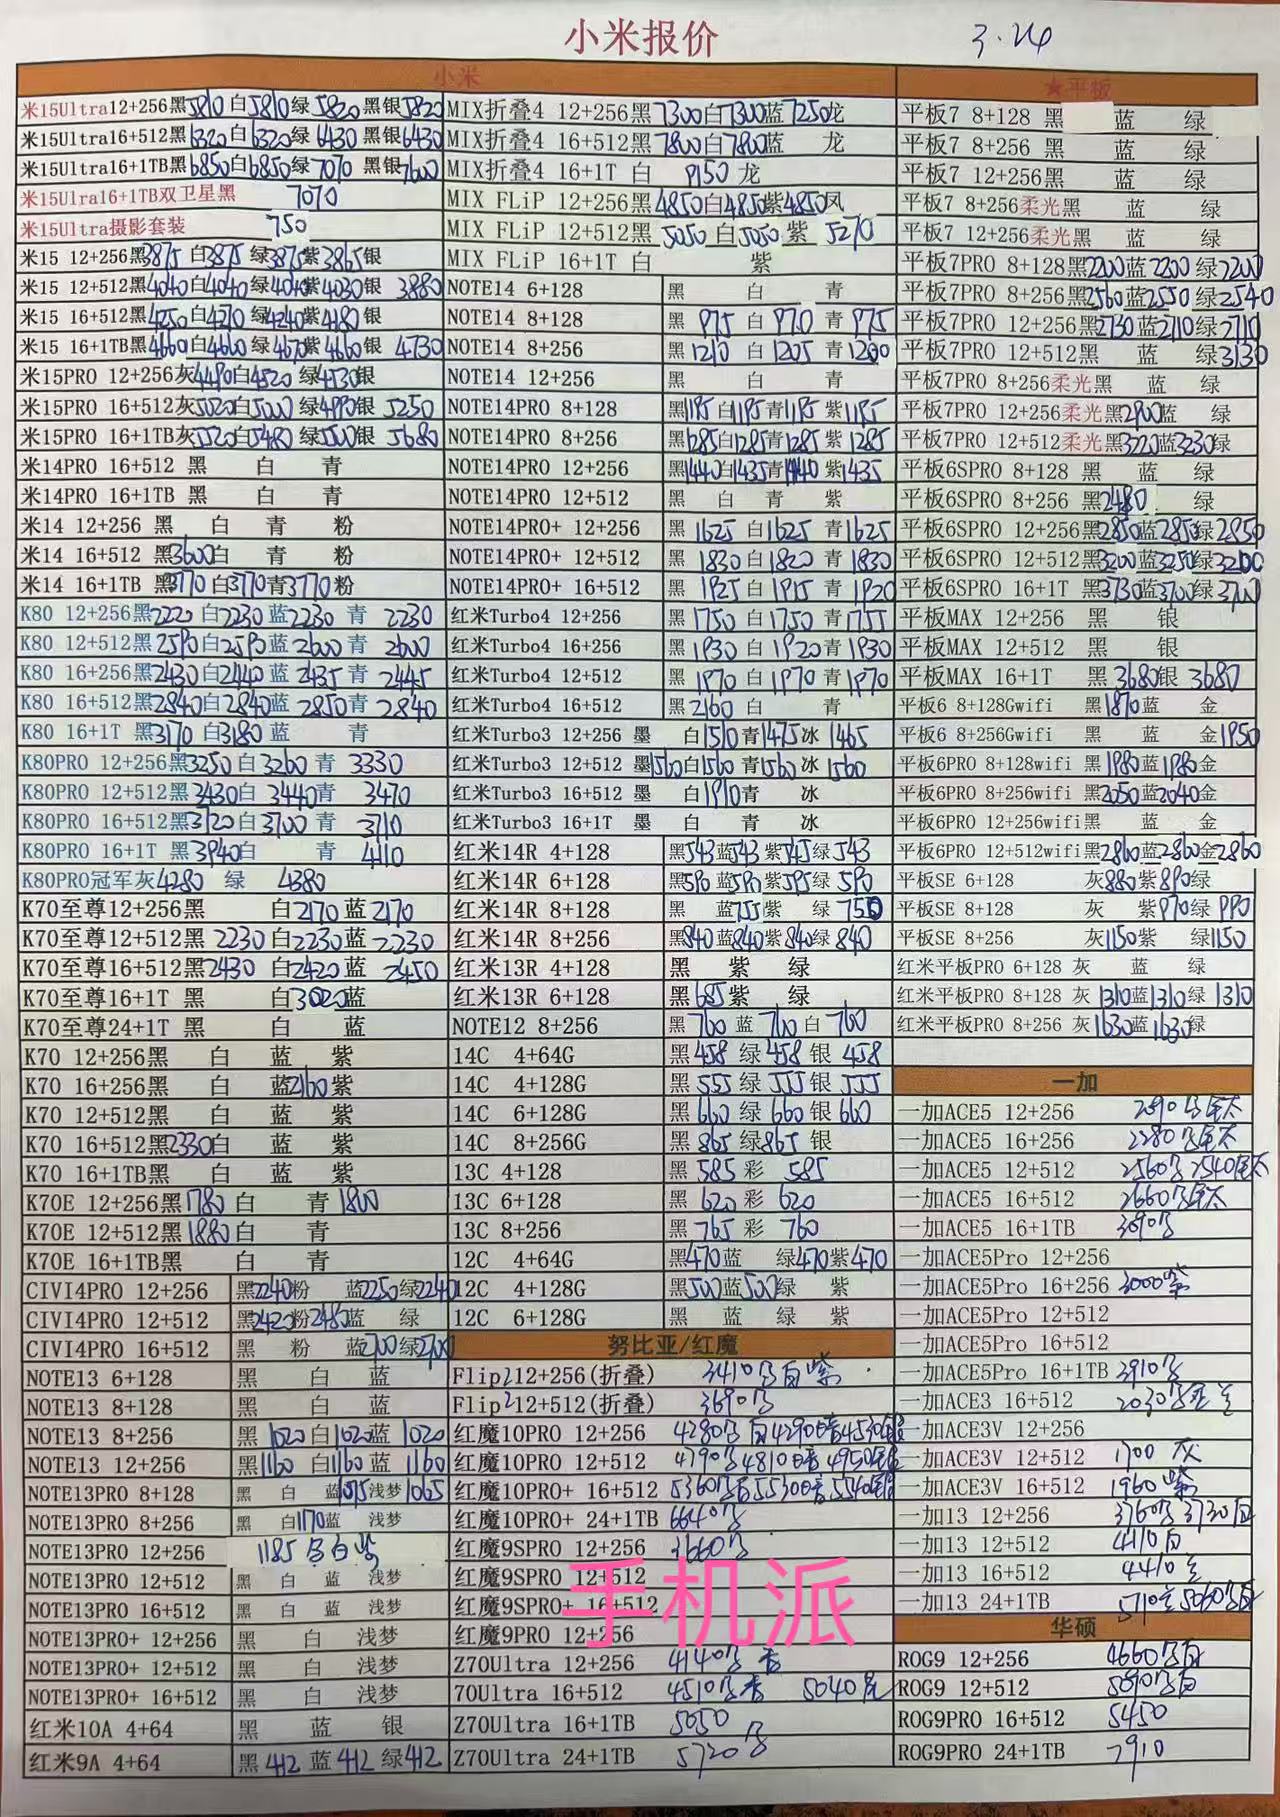 小米报价 3.24
小米
米15Ultra12+256黑5810白5810绿5820黑银5820
米15Ultra16+512黑6320白6320绿6430黑银6430
米15Ultra16+1TB黑6850白6850绿7070黑银7600
米15Ulra16+1TB双卫星黑 7070
米15Ultra摄影套装 750
米15 12+256黑3875白3875绿3875紫3865银
米15 12+512黑4040白4040绿4040紫4030银 3880
米15 16+512黑4250白4270绿4240紫4180银
米15 16+1TB黑4660白4660绿4670紫4660银 4730
米15PRO 12+256灰4490白4520绿4530银
米15PRO 16+512灰5020白5000绿4990银 5250
米15PRO 16+1TB灰5520白5480绿5500银 5680
米14PRO 16+512 黑 白 青
米14PRO 16+1TB 黑 白 青
米14 12+256 黑 白 青 粉
米14 16+512 黑3600白 青 粉
米14 16+1TB 黑3770白3770青3770粉
K80 12+256黑2220 白2230蓝2230 青 2230
K80 12+512黑2590白2590蓝2600青 2600
K80 16+256黑2430白2440蓝2435青 2445
K80 16+512黑2840白2840蓝2850青2840
K80 16+1T 黑3170 白3180蓝 青
K80PRO 12+256黑3250白3260青 3330
K80PRO 12+512黑3430白3440青 3470
K80PRO 16+512黑3720白3700青 3710
K80PRO 16+1T 黑3940白 青 4110
K80PRO冠军灰4280 绿 4380
K70至尊12+256黑 白2170蓝2170
K70至尊12+512黑 2230白2230蓝2230
K70至尊16+512黑2430 白2420蓝 2450
K70至尊16+1T 黑 白3020蓝
K70至尊24+1T 黑 白 蓝
K70 12+256黑 白 蓝 紫
K70 16+256黑 白 蓝2160紫
K70 12+512黑 白 蓝 紫
K70 16+512黑2330白 蓝 紫
K70 16+1TB黑 白 蓝 紫
K70E 12+256黑1780白 青1800
K70E 12+512黑1880白 青
K70E 16+1TB黑 白 青
CIVI4PRO 12+256 黑2240粉 蓝2250绿2240
CIVI4PRO 12+512 黑2420粉2480蓝 绿
CIVI4PRO 16+512 黑 粉 蓝2700绿2700
NOTE13 6+128 黑 白 蓝
NOTE13 8+128 黑 白 蓝
NOTE13 8+256 黑1020白1020蓝1020
NOTE13 12+256 黑1160白1160蓝1160
NOTE13PRO 8+128 黑 白 蓝1075浅梦1065
NOTE13PRO 8+256 黑 白1170蓝 浅梦
NOTE13PRO 12+256 1185
NOTE13PRO 12+512 黑 白 蓝 浅梦
NOTE13PRO 16+512 黑 白 蓝 浅梦
NOTE13PRO+ 12+256 黑 白 浅梦
NOTE13PRO+ 12+512 黑 白 浅梦
NOTE13PRO+ 16+512 黑 白 浅梦
红米10A 4+64 黑 蓝 银
红米9A 4+64 黑412蓝412绿412
MIX折叠4 12+256黑7300白7300蓝7250龙
MIX折叠4 16+512黑7800白7800蓝 龙
MIX折叠4 16+1T 白 9150龙
MIX FLiP 12+256黑4850白4850紫4850凤
MIX FLiP 12+512黑5050白5050紫 5270
MIX FLiP 16+1T 白 紫
NOTE14 6+128 黑 白 青
NOTE14 8+128 黑 975白970青975
NOTE14 8+256 黑1210白1205青1200
NOTE14 12+256 黑 白 青
NOTE14PRO 8+128 黑1195白1195青1195紫1195
NOTE14PRO 8+256 黑1285白1285青1285紫1285
NOTE14PRO 12+256 黑1440白1435青1440紫1435
NOTE14PRO 12+512 黑 白 青 紫
NOTE14PRO+ 12+256 黑1625白1625青1625
NOTE14PRO+ 12+512 黑1830白1820青1830
NOTE14PRO+ 16+512 黑1925白1915青1920
红米Turbo4 12+256 黑1750白1750青1755
红米Turbo4 16+256 黑1930白1920青1930
红米Turbo4 12+512 黑1970白1970青1970
红米Turbo4 16+512 黑2160白 青
红米Turbo3 12+256 墨 白1510青1475冰1465
红米Turbo3 12+512 墨1560白1560青1560冰1560
红米Turbo3 16+512 墨 白1910青 冰
红米Turbo3 16+1T 墨 白 青 冰
红米14R 4+128 黑543蓝543紫545绿543
红米14R 6+128 黑590蓝590紫595绿590
红米14R 8+128 黑 蓝755紫 绿755
红米14R 8+256 黑840蓝840紫840绿840
红米13R 4+128 黑 紫 绿
红米13R 6+128 黑685紫 绿
NOTE12 8+256 黑760蓝760白760
14C 4+64G 黑458绿458银458
14C 4+128G 黑555绿555银555
14C 6+128G 黑660绿660银660
14C 8+256G 黑865绿865银
13C 4+128 黑585彩585
13C 6+128 黑620彩620
13C 8+256 黑765彩760
12C 4+64G 黑470蓝 绿470紫470
12C 4+128G 黑500蓝500绿 紫
12C 6+128G 黑 蓝 绿 紫
努比亚/红魔
Flip212+256(折叠) 3410
Flip212+512(折叠) 3690
红魔10PRO 12+256 4280 4290 4530
红魔10PRO 12+512 4790 4810 4950
红魔10PRO+ 16+512 5360 5530 5540
红魔10PRO+ 24+1TB 6640
红魔9SPRO 12+256 3660
红魔9SPRO 12+512
红魔9SPRO+ 16+512
红魔9PRO 12+256
Z70Ultra 12+256 4140
70Ultra 16+512 4510 5040
Z70Ultra 16+1TB 5050
Z70Ultra 24+1TB 5720
★平板
平板7 8+128 黑 蓝 绿
平板7 8+256 黑 蓝 绿
平板7 12+256 黑 蓝 绿
平板7 8+256柔光黑 蓝 绿
平板7 12+256柔光黑 蓝 绿
平板7PRO 8+128黑2200蓝2200绿2200
平板7PRO 8+256黑2560蓝2550绿2540
平板7PRO 12+256黑2730蓝2710绿2710
平板7PRO 12+512黑 蓝 绿3130
平板7PRO 8+256柔光黑 蓝 绿
平板7PRO 12+256柔光黑2900蓝 绿
平板7PRO 12+512柔光黑3220蓝3230绿
平板6SPRO 8+128 黑 蓝 绿
平板6SPRO 8+256 黑2480 绿
平板6SPRO 12+256黑2850蓝2850绿2850
平板6SPRO 12+512黑3200蓝3250绿3200
平板6SPRO 16+1T 黑3730蓝3700绿3700
平板MAX 12+256 黑 银
平板MAX 12+512 黑 银
平板MAX 16+1T 黑3680银3680
平板6 8+128Gwifi 黑1870蓝 金
平板6 8+256Gwifi 黑 蓝 金1950
平板6PRO 8+128wifi 黑1980蓝1980金
平板6PRO 8+256wifi 黑2050蓝2040金
平板6PRO 12+256wifi黑 蓝 金
平板6PRO 12+512wifi黑2860蓝2860金2860
平板SE 6+128 灰880紫890绿
平板SE 8+128 灰 紫970绿990
平板SE 8+256 灰1150紫 绿1150
红米平板PRO 6+128 灰 蓝 绿
红米平板PRO 8+128 灰1310蓝1310绿1310
红米平板PRO 8+256 灰1630蓝1630绿
一加
一加ACE5 12+256
一加ACE5 16+256 2280
一加ACE5 12+512 2560 2540
一加ACE5 16+512 2660
一加ACE5 16+1TB 3090
一加ACE5Pro 12+256
一加ACE5Pro 16+256 3000紫
一加ACE5Pro 12+512
一加ACE5Pro 16+512
一加ACE5Pro 16+1TB 3910
一加ACE3 16+512 2030
一加ACE3V 12+256
一加ACE3V 12+512 1700 灰
一加ACE3V 16+512 1960紫
一加13 12+256 3760 3730白
一加13 12+512 4110白
一加13 16+512 4410
一加13 24+1TB 5710 5060
华硕
ROG9 12+256 4660
ROG9 12+512 5090
ROG9PRO 16+512 5450
ROG9PRO 24+1TB 7910
手机派